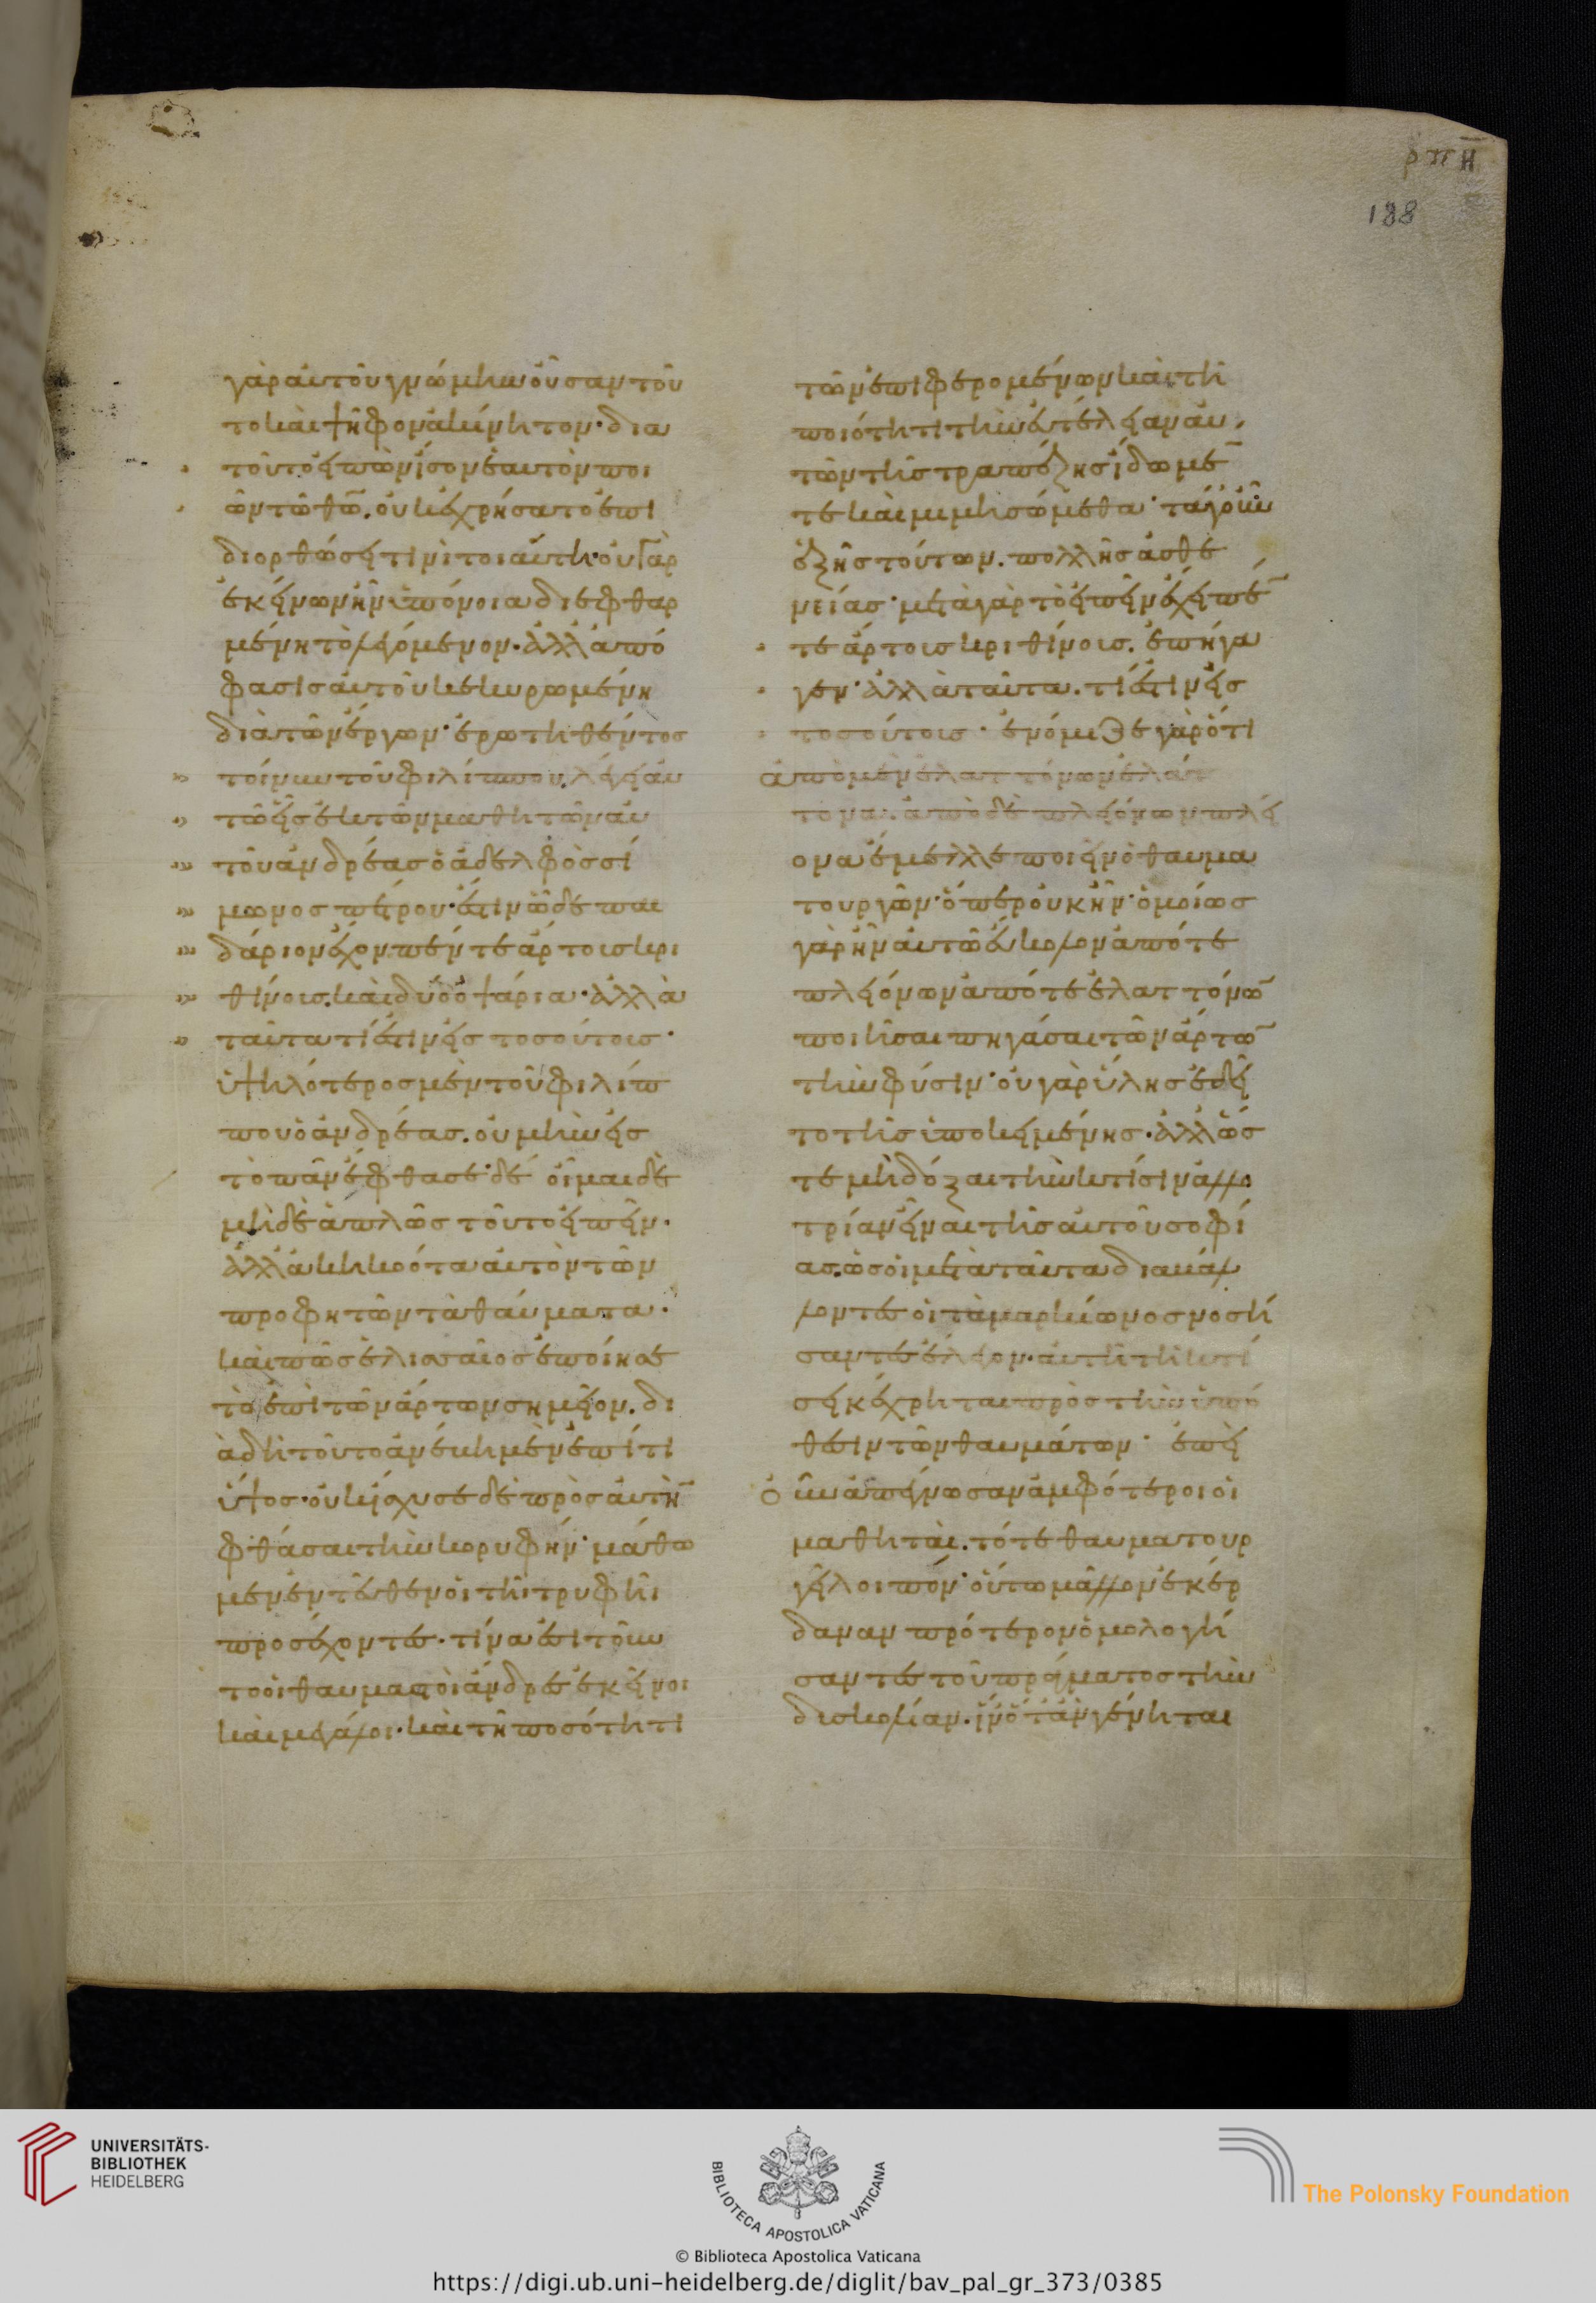 ρπη
188
γὰρ αὐτοῦ γνώμην οὖσαν τοῦ
το καὶ ψῆφον ἀκίνητον· δια
τοῦτο εἰπὼν ἴσον ἑαυτὸν ποι
ῶν τῶ θῶ. οὐκ ἐχρήσατο ἐπι
διορθώσει τινὶ τοιαύτη· οὐ γὰρ
ἐκείνων ἦν ὑπόνοια διεφθαρ
μένη τὸ λεγόμενον. ἀλλ' ἀπό
φασις αὐτοῦ κεκυρωμένη
διὰ τῶν ἔργων· ἐρωτηθέντος
τοίνυν τοῦ φιλίππου. λέγει αυ
τῶ εἷς ἐκ τῶν μαθητῶν αυ
τοῦ ἀνδρέας ὁ ἀδελφὸς σί
μωνος πέτρου· ἔστιν ὧδε παι
δάριον ἔχον πέντε ἄρτους κρι
θίνους. καὶ δύο ὀψάρια· ἀλλὰ
ταῦτα τί ἐστιν εἰς τοσούτους·
ὑψηλότερος μὲν τοῦ φιλίπ
που ὁ ἀνδρέας. οὐ μὴν εἰς
τὸ πᾶν ἔφθασε· δέ οἶμαι δὲ
μηδὲ ἁπλῶς τοῦτο εἰπεῖν.
ἀλλ' ἀκηκοότα αὐτὸν τῶν
προφητῶν τὰ θαύματα.
καὶ πῶς ἐλισσαῖος ἐποίησε
τὸ ἐπὶ τῶν ἄρτων σημεῖον. δι
ὰ δὴ τοῦτο ἀνέβη μὲν ἐπί τι
ὕψος. οὐκ ἴσχυσε δὲ πρὸς αὐτὴν
φθάσαι τὴν κορυφήν· μάθω
μεν ἐντεῦθεν οἱ τῆ τρυφῆ
προσέχοντες. τίνα ἐσιτοῦν
το οἱ θαυμαστοὶ ἄνδρες ἐκεῖνοι
καὶ μεγάλοι. καὶ τῆ ποσότητι
τῶν ἐπιφερομένων καὶ τῆ
ποιότητι τὴν εὐτέλειαν αὐ
τῶν τῆς τραπέζης ἴδωμέν
τε καὶ μιμησώμεθα· τὰ γοῦν
ἑξῆς τούτων. πολλῆς ἀσθε
νείας· μετὰ γὰρ τὸ εἰπεῖν ἔχει πέν
τε ἄρτους κριθίνους. ἐπήγα
γεν· ἀλλὰ ταῦτα. τί ἐστιν εἰς
τοσούτους· ἐνόμιζε γὰρ ὅτι
ἀπὸ μὲν ἐλαττόνων ἐλάτ
τονα. ἀπὸ δὲ πλειόνων πλεί
ονα ἔμελλε ποιεῖν ὁ θαυμα
τουργῶν· ὅπερ οὐκ ἦν· ὁμοίως
γὰρ ἦν αὐτῶ εὔκολον ἀπό τε
πλειόνων ἀπό τε ἐλαττόνων
ποιῆσαι πηγάσαι τῶν ἄρτων
τὴν φύσιν· οὐ γὰρ ὕλης ἐδεῖ
το τῆς ὑποκειμένης. ἀλλ' ὥς
τε μὴ δόξαι τὴν κτίσιν ἀλλο
τρίαν εἶναι τῆς αὐτοῦ σοφί
ας. ὡς οἱ μετὰ ταῦτα διαβάλ
λοντες οἱ τὰ μαρκίωνος νοσή
σαντες ἔλεγον. αὐτῆ τῆ κτί
σει κέχρηται πρὸς τὴν ὑπό
θεσιν τῶν θαυμάτων· ἐπεὶ
οὖν ἀπέγνωσαν ἀμφότεροι οἱ
μαθηταὶ. τότε θαυματουρ
γεῖ λοιπόν· οὕτω μᾶλλον ἐκέρ
δαναν πρότερον ὁμολογή
σαντες τοῦ πράγματος τὴν
δυσκολίαν. ἵν' ὅταν γένηται
UNIVERSITÄTS-
BIBLIOTHEK
HEIDELBERG
BIBLIOTECA APOSTOLICA VATICANA
The Polonsky Foundation
© Biblioteca Apostolica Vaticana
https://digi.ub.uni-heidelberg.de/diglit/bav_pal_gr_373/0385